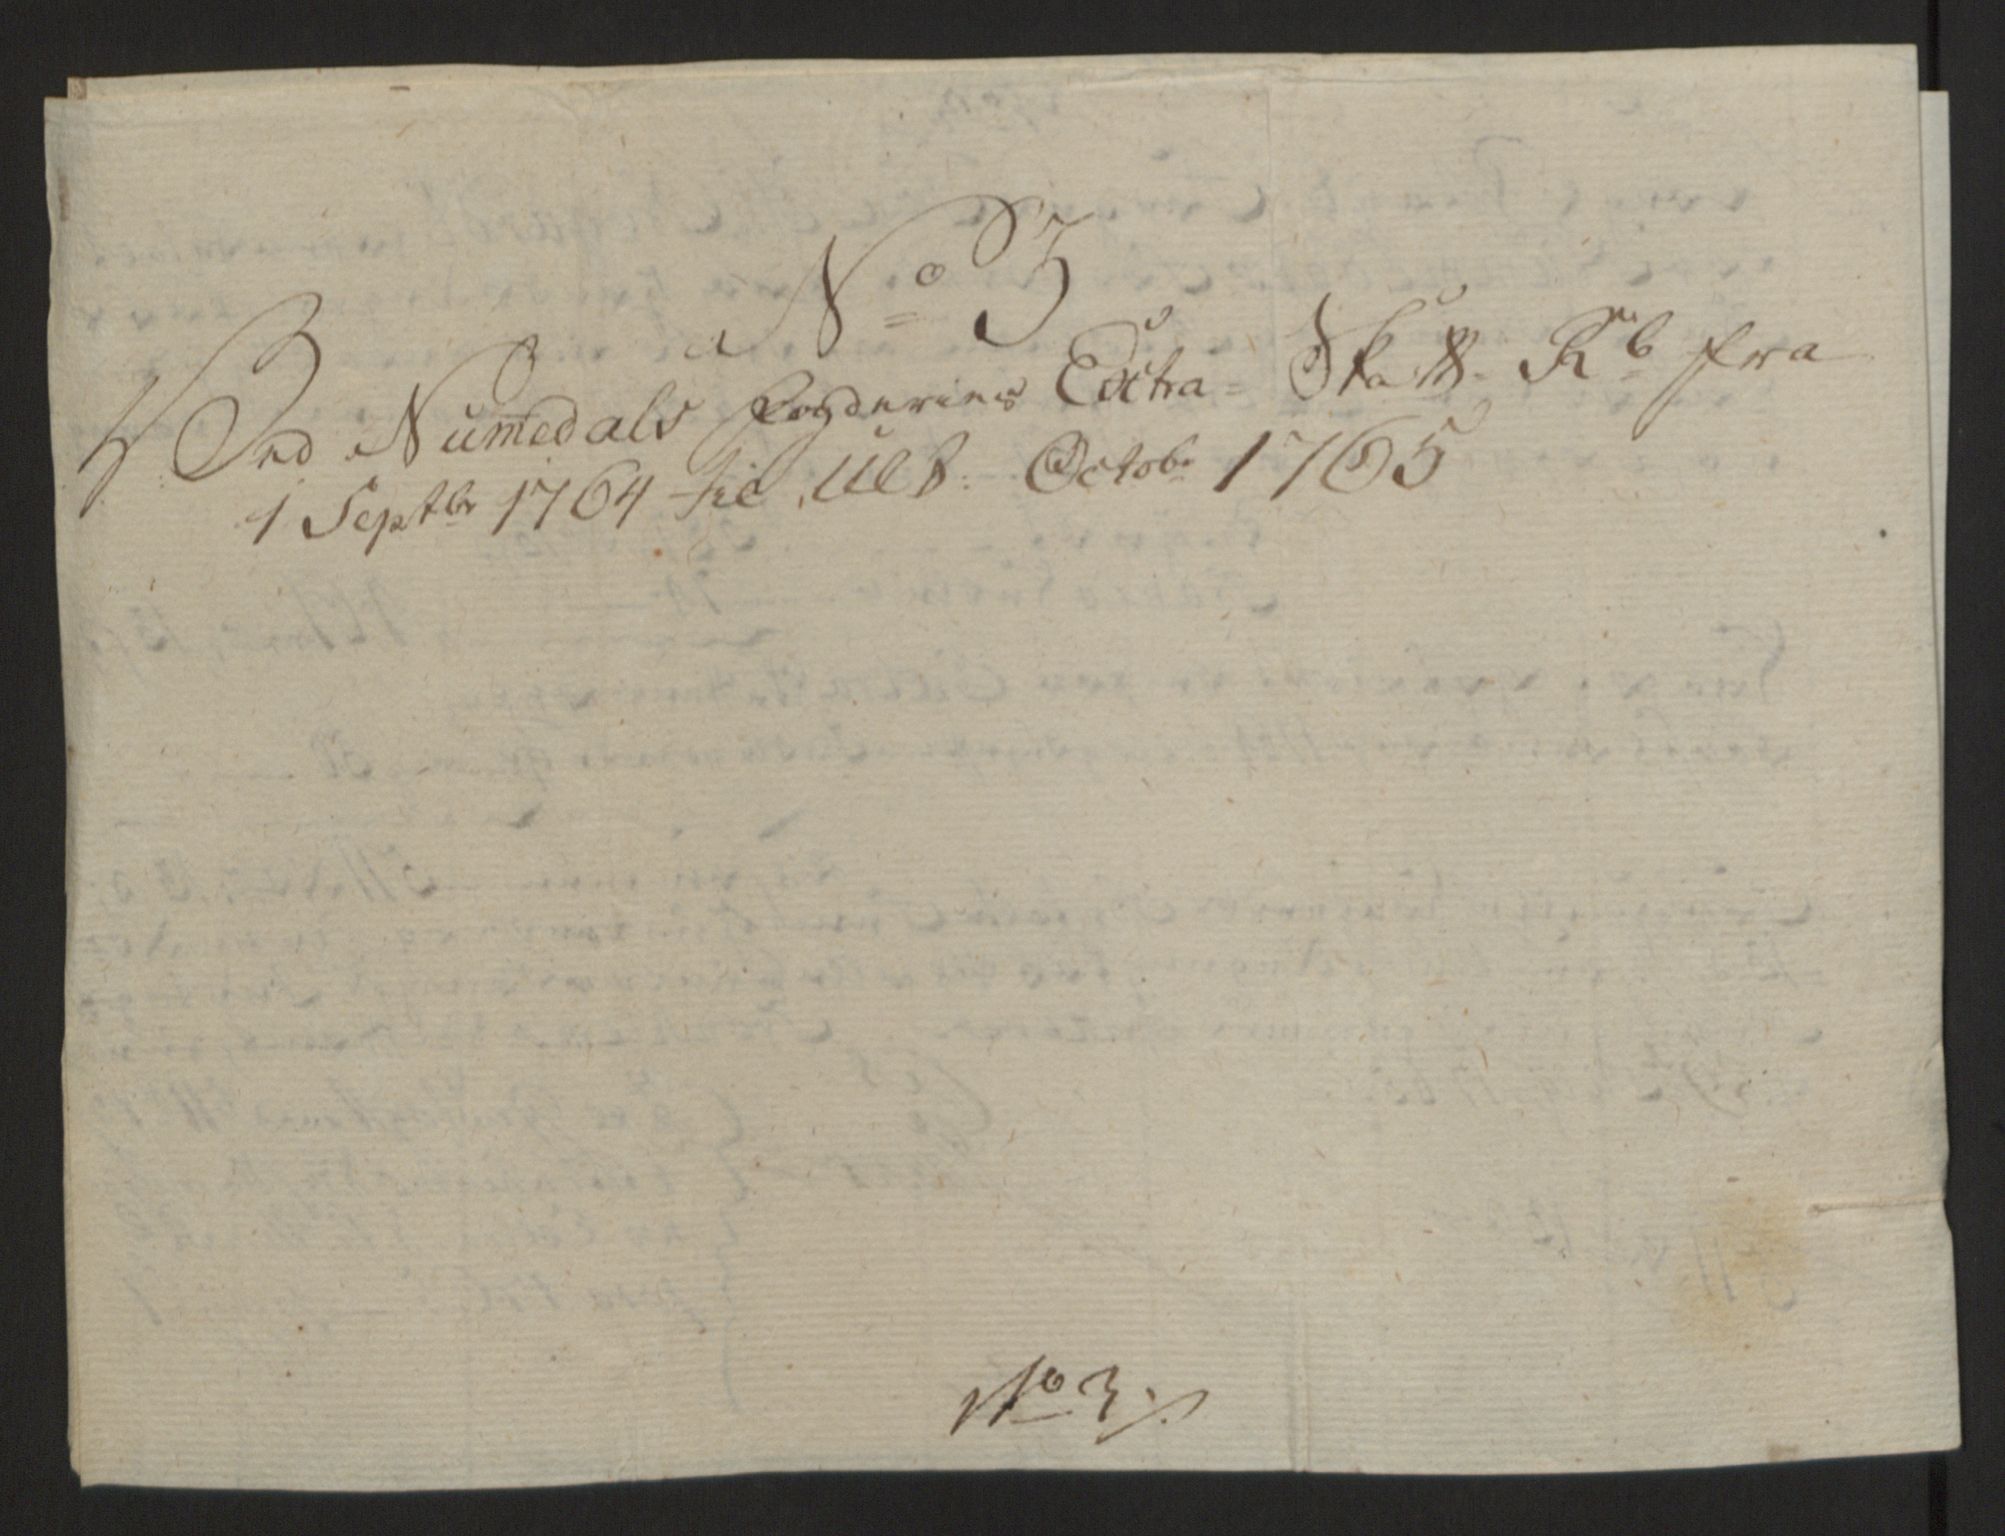 No 3
Ved Numedals Fogderies Extra-Skatts Rb fra
1 Septbr 1764 til Ult: Octobr 1765
No 3.